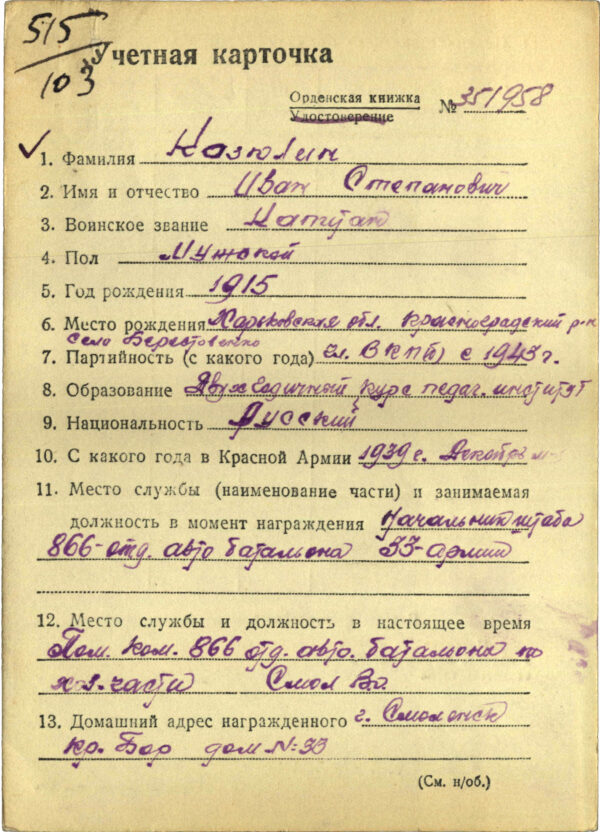 515
103
Учетная карточка
Орденская книжка
Удостоверение
№ 351958
1. Фамилия Казюлин
2. Имя и отчество Иван Степанович
3. Воинское звание Капитан
4. Пол Мужской
5. Год рождения 1915
6. Место рождения Харьковская обл. Красноградский р-н
село Берестовенко
7. Партийность (с какого года) чл. ВКП(б) с 1943 г.
8. Образование Двухгодичный курс педаг. институт
9. Национальность Русский
10. С какого года в Красной Армии 1939 г. Декабрь м-ц
11. Место службы (наименование части) и занимаемая
должность в момент награждения Начальник штаба
866-отд. авто батальона 33-армии
12. Место службы и должность в настоящее время
Пом. ком. 866 отд. авто. батальона по
х-з. части Смол Во.
13. Домашний адрес награжденного г. Смоленск
кр. Бор дом № 33
(См. н/об.)